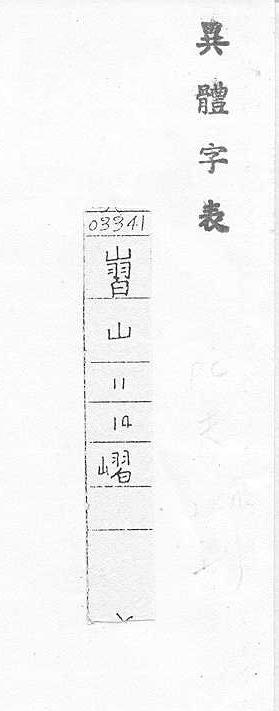 異體字表
03341
山
11
14
嶍